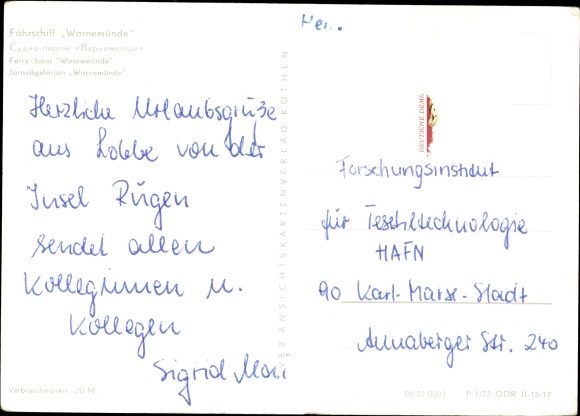 Fährschiff „Warnemünde“
Судно-паром «Варнемюнде»
Ferry-boat "Warnemünde"
Järnvägsfärjan „Warnemünde“
Herzliche Urlaubsgrüße
aus Lobbe von der
Insel Rügen
sendet allen
Kolleginnen u.
Kollegen
Sigrid
Verbraucherpreis -20 M
VEB ANSICHTSKARTENVERLAG KÖTHEN
DEUTSCHE DEMO
Forschungsinstitut
für Textiltechnologie
HAFN
90 Karl-Marx-Stadt
Annaberger Str. 240
05 01 0003 P 1/72 DDR II-15-17